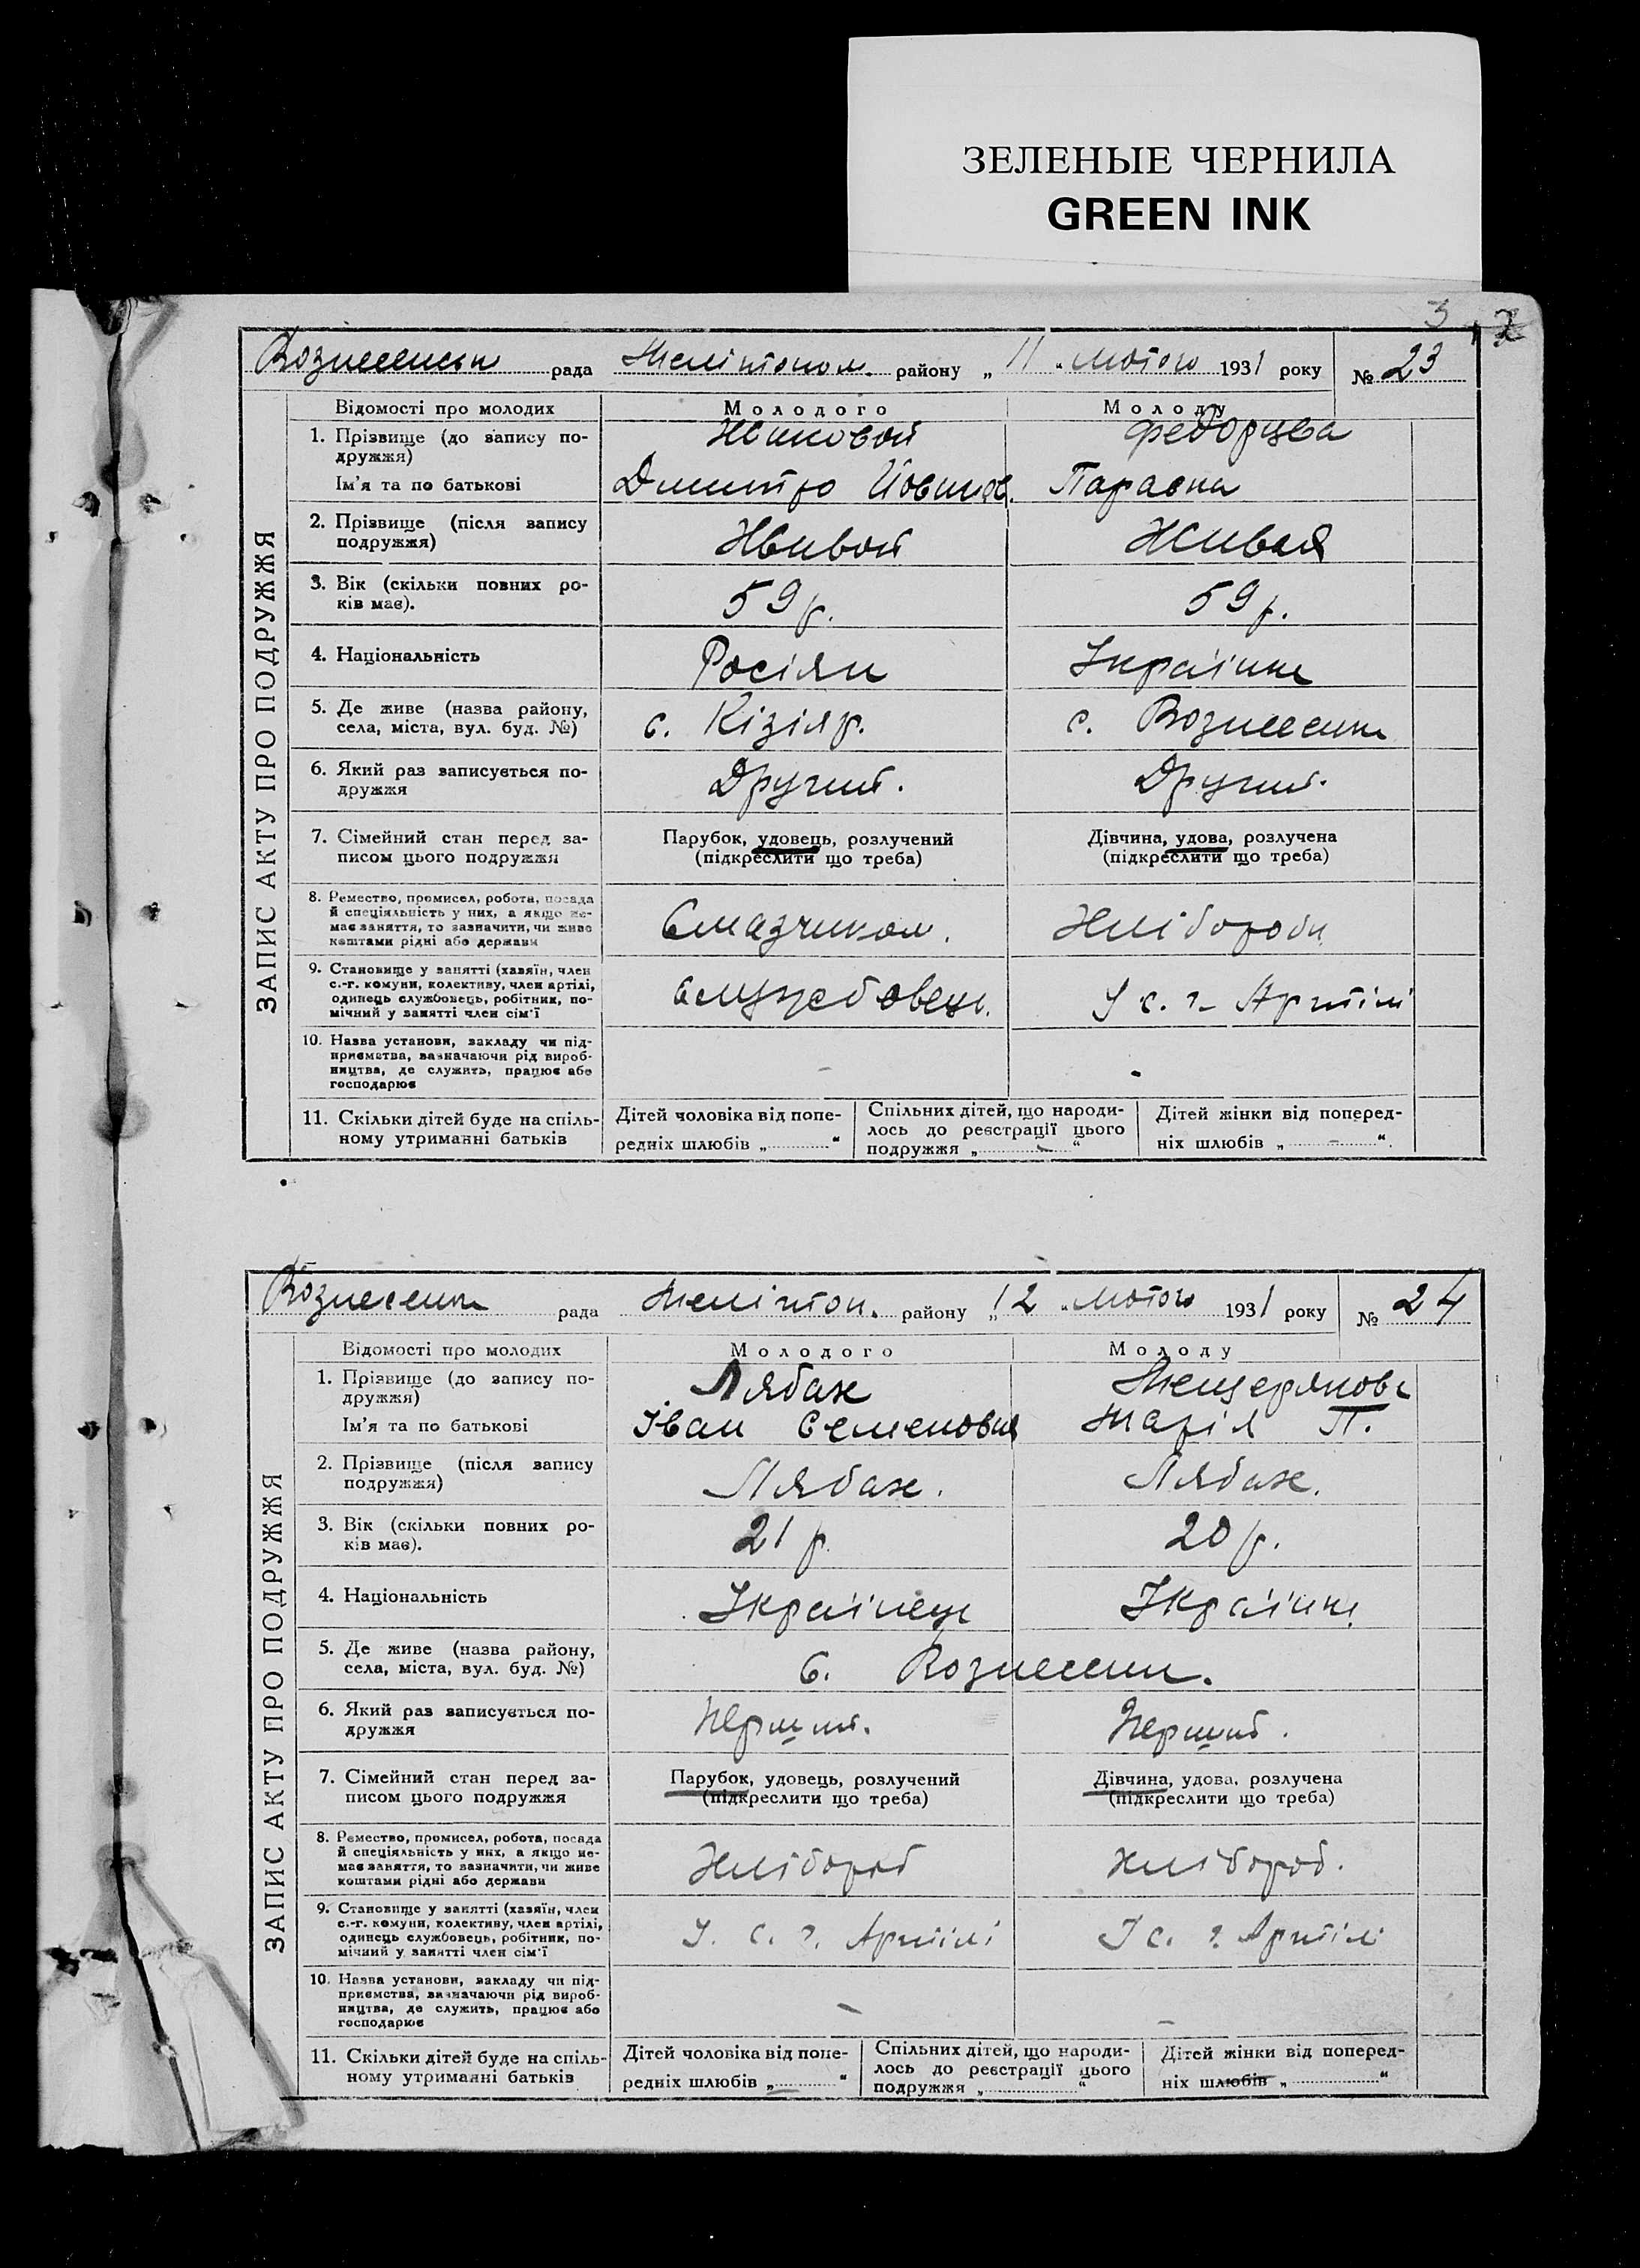 ЗЕЛЕНЫЕ ЧЕРНИЛА
GREEN INK
3
рада Мелітопол. району „11“ лютого 1931 року № 23
ЗАПИС АКТУ ПРО ПОДРУЖЖЯ
Відомості про молодих Молодого Молоду
1. Прізвище (до запису по-
дружжя)
Ім'я та по батькові Дмитро Параска
2. Прізвище (після запису
подружжя) Живой Живая
3. Вік (скільки повних ро-
ків має). 59 р. 59 р.
4. Національність Росіян Українка
5. Де живе (назва району,
села, міста, вул. буд. №) с. Кізіяр. с. Вознесенка
6. Який раз записується по-
дружжя Другий. Другий.
7. Сімейний стан перед за-
писом цього подружжя
Парубок, удовець, розлучений
(підкреслити що треба)
Дівчина, удова, розлучена
(підкреслити що треба)
8. Ремество, промисел, робота, посада
й спеціяльність у них, а якщо не-
має заняття, то зазначити, чи живе
коштами рідні або держави
Смазчиком. Хлібороб
9. Становище у занятті (хазяїн, член
с.-г. комуни, колективу, член артілі,
одинець службовець, робітник, по-
мічний у занятті член сім'ї
службовець. У с. г. Артілі
10. Назва установи, закладу чи під-
приємства, зазначаючи рід вироб-
ництва, де служить, працює або
господарює
11. Скільки дітей буде на спіль-
ному утриманні батьків
Дітей чоловіка від попе-
редніх шлюбів „ “
Спільних дітей, що народи-
лось до реєстрації цього
подружжя „ “
Дітей жінки від поперед-
ніх шлюбів „ – “.
Вознесенка рада Меліто п. району „12“ лютого 1931 року № 24
ЗАПИС АКТУ ПРО ПОДРУЖЖЯ
Відомості про молодих Молодого Молоду
1. Прізвище (до запису по-
дружжя) Лябах Мещерякова
Ім'я та по батькові Іван Семенович Марія П.
2. Прізвище (після запису
подружжя) Лябах. Лябах.
3. Вік (скільки повних ро-
ків має). 21 р. 20 р.
4. Національність Українець Українка
5. Де живе (назва району,
села, міста, вул. буд. №) с. Вознесенка.
6. Який раз записується по-
дружжя Перший. Перший.
7. Сімейний стан перед за-
писом цього подружжя
Парубок, удовець, розлучений
(підкреслити що треба)
Дівчина, удова, розлучена
(підкреслити що треба)
8. Ремество, промисел, робота, посада
й спеціяльність у них, а якщо не-
має заняття, то зазначити, чи живе
коштами рідні або держави
Хлібороб Хлібороб.
9. Становище у занятті (хазяїн, член
с.-г. комуни, колективу, член артілі,
одинець службовець, робітник, по-
мічний у занятті член сім'ї
У. с. г. Артілі У с. г. Артілі
10. Назва установи, закладу чи під-
приємства, зазначаючи рід вироб-
ництва, де служить, працює або
господарює
11. Скільки дітей буде на спіль-
ному утриманні батьків
Дітей чоловіка від попе-
редніх шлюбів „ “
Спільних дітей, що народи-
лось до реєстрації цього
подружжя „ “
Дітей жінки від поперед-
ніх шлюбів „ “